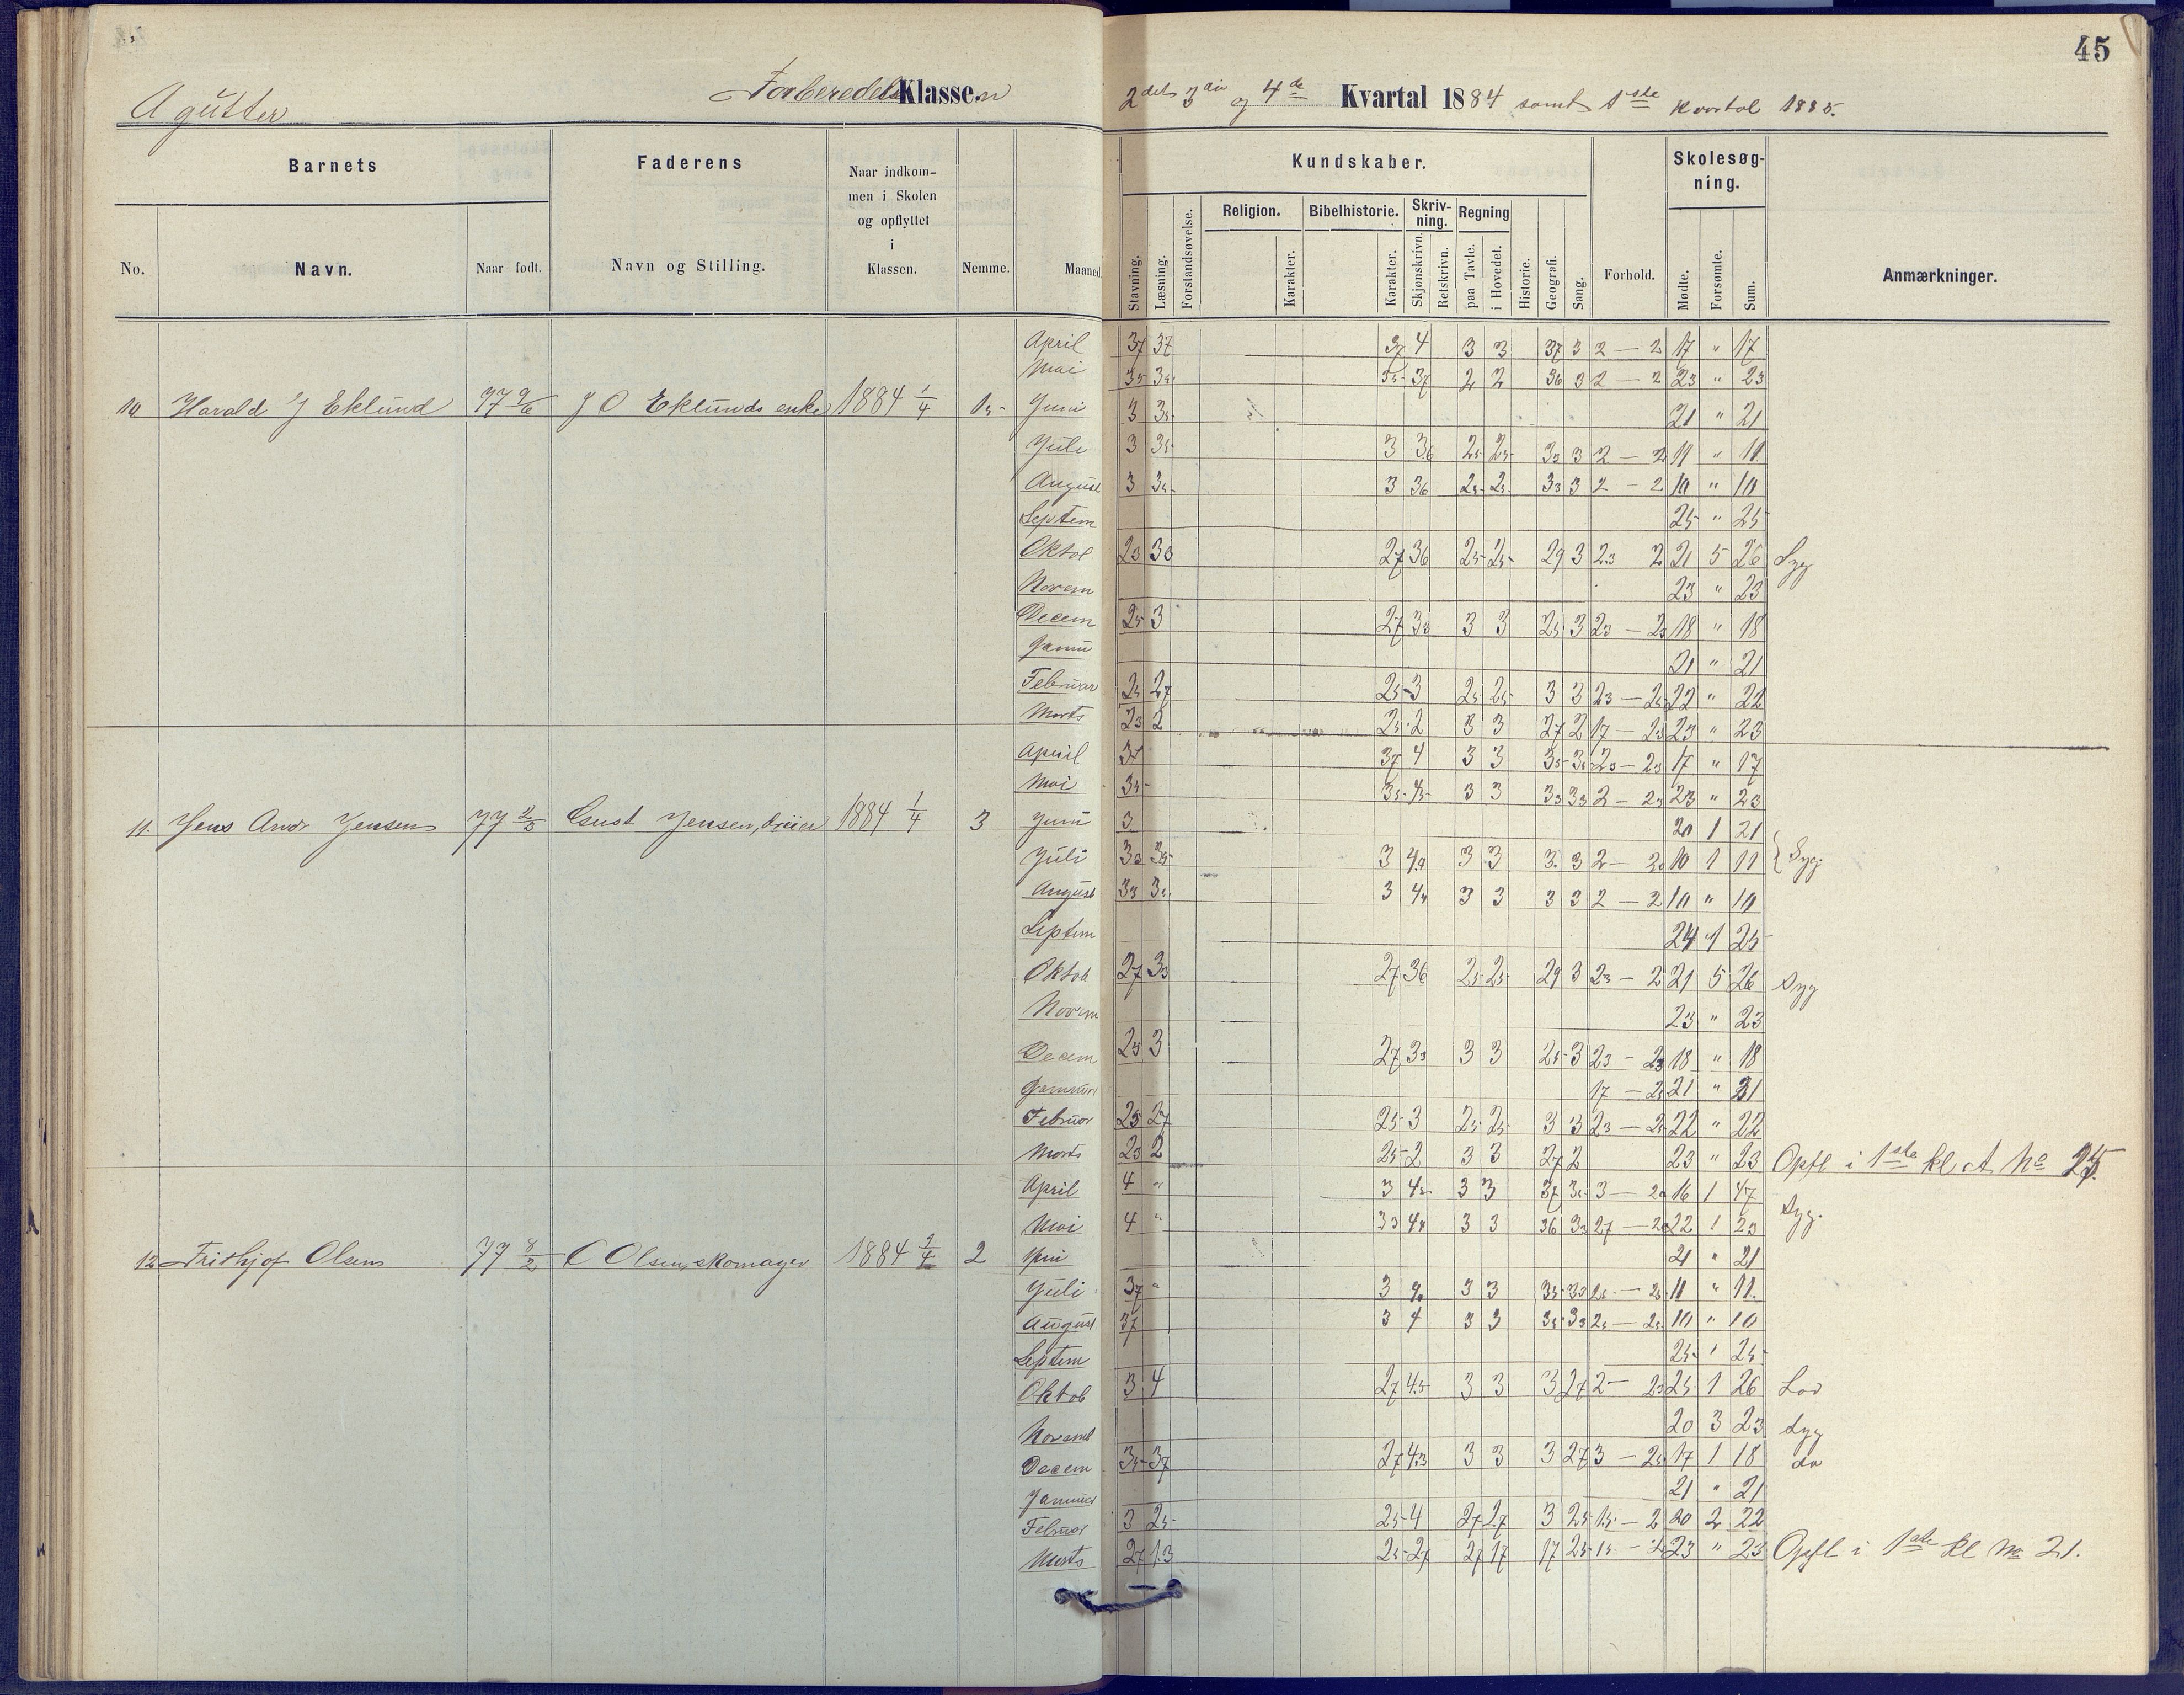 45
A gutter
Forberedels Klasse.n
2det 3die og 4de Kvartal 1884 samt 1ste Kvartal 1885.
Barnets
Faderens
Naar indkom-
men i Skolen
og opflyttet
i
Klassen.
Kundskaber.
Skolesøg-
ning.
No.
Navn.
Naar født.
Navn og Stilling.
Nemme.
Maaned
Stavning.
Læsning.
Forstandsøvelse.
Religion.
Karakter.
Bibelhistorie.
Karakter.
Skriv-
ning.
Skjønskrivn.
Retskrivn.
Regning
paa Tavle.
i Hovedet.
Historie.
Geografi.
Sang.
Forhold.
Mødte.
Forsømte.
Sum.
Anmærkninger.
April 37 37 37 4 3 3 37 3 2 — 2 17 " 17
Mai 35 35 35 37 2 2 36 3 2 — 2 23 " 23
10 Harald J Eklund 77 9/6 J O Eklunds enke 1884 1/4 15 Juni 3 35 21 " 21
Juli 3 35 3 36 25 25 33 3 2 — 2 11 " 11
August 3 35 3 36 25 25 33 3 2 — 2 10 " 10
Septem 25 " 25
Oktob 23 33 27 36 25 25 29 3 23 2 21 5 26 Syg
Novem 23 " 23
Decem 25 3 27 33 3 3 25 3 23 — 23 18 " 18
Janu 21 " 21
Februar 25 27 25 3 25 25 3 3 23 — 25 22 " 22
Marts 23 2 25 2 3 3 27 2 17 — 23 23 " 23
April 37 37 4 3 3 35 35 23 — 23 17 " 17
Mai 35 35 45 3 3 33 33 2 — 23 23 " 23
11. Jens Andr Jensen 77 2/5 Gust Jensen, 1884 1/4 3 Juni 3 20 1 21
Juli 33 35 3 3 3 3 3 2 — 10 1 11 Syg
August 33 35 3 3 3 3 3 2 — 2 10 " 10
Septem 24 1 25
Oktob 27 33 27 36 25 25 29 3 23 — 2 21 5 26 Syg
Novem 23 " 23
Decem 25 3 27 33 3 3 25 3 23 — 23 18 " 18
Januar 17 — 25 21 " 21
Februar 25 27 25 3 25 25 3 3 23 — 25 22 " 22
Marts 23 2 25 2 3 3 27 2 23 " 23 Opfl i 1ste kl A No 25.
April 4 " 3 45 3 3 37 35 3 — 16 1 17 Syg.
Mai 4 " 33 3 3 36 33 27 — 22 1 23
12 Frithjof Olsen 77 8/2 C Olsen, skomager 1884 1/4 2 Juni 21 " 21
Juli 37 " 3 3 3 35 33 25 — 25 11 " 11
August 37 3 4 3 3 35 33 25 — 25 10 " 10
Septem 25 " 25
Oktob 3 4 27 45 3 3 3 27 2 — 23 25 1 26 Lov
Novemb 20 3 23 Syg
Decem 35 37 27 43 3 3 3 27 3 — 25 17 1 18 do
Januar 21 " 21
Februar 3 25 25 4 27 27 3 25 15 — 2 20 2 22
Marts 27 13 25 27 27 17 17 25 15 — 23 " 23 Opfl i 1ste kl No 21.